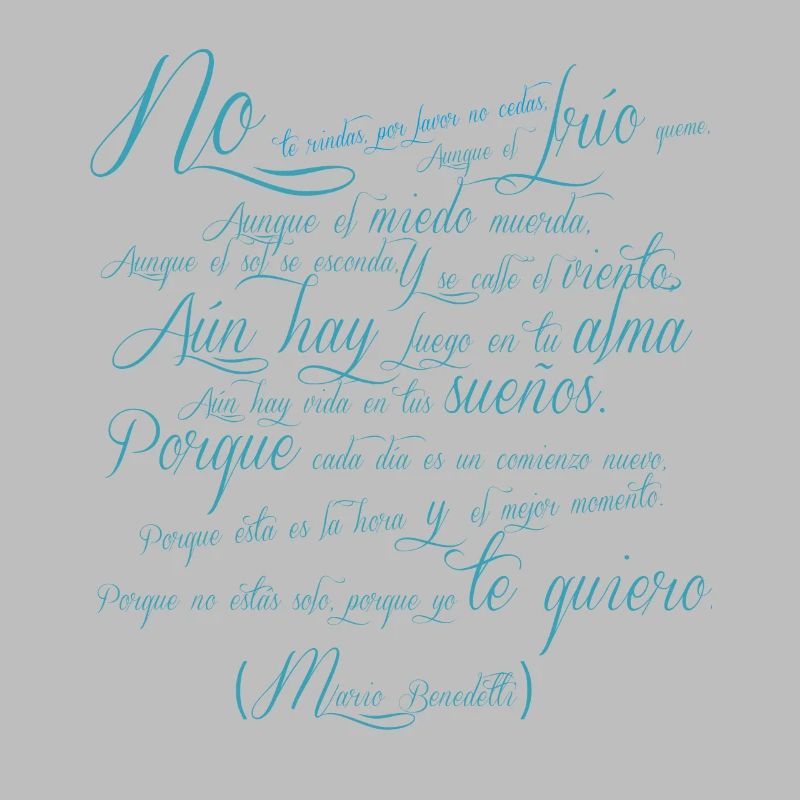 No te rindas, por favor no cedas,
Aunque el frío queme,
Aunque el miedo muerda,
Aunque el sol se esconda, Y se calle el viento,
Aún hay fuego en tu alma
Aún hay vida en tus sueños.
Porque cada día es un comienzo nuevo,
Porque esta es la hora y el mejor momento.
Porque no estás solo, porque yo te quiero.
(Mario Benedetti)